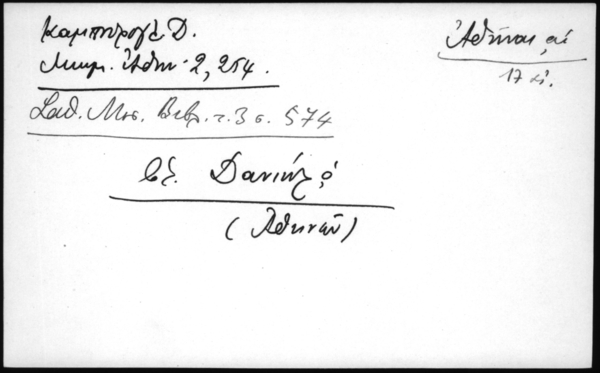 Καμπούρογλ. Δ.
Μνημ. Ἀθην. 2, 254.
Ἀθῆναι, αἱ
17 αἰ.
Σαθ. Μεσ. Βιβ. τ. 3 σ. 574
Βλ. Δανιήλ, ὁ
(Ἀθηνῶν)